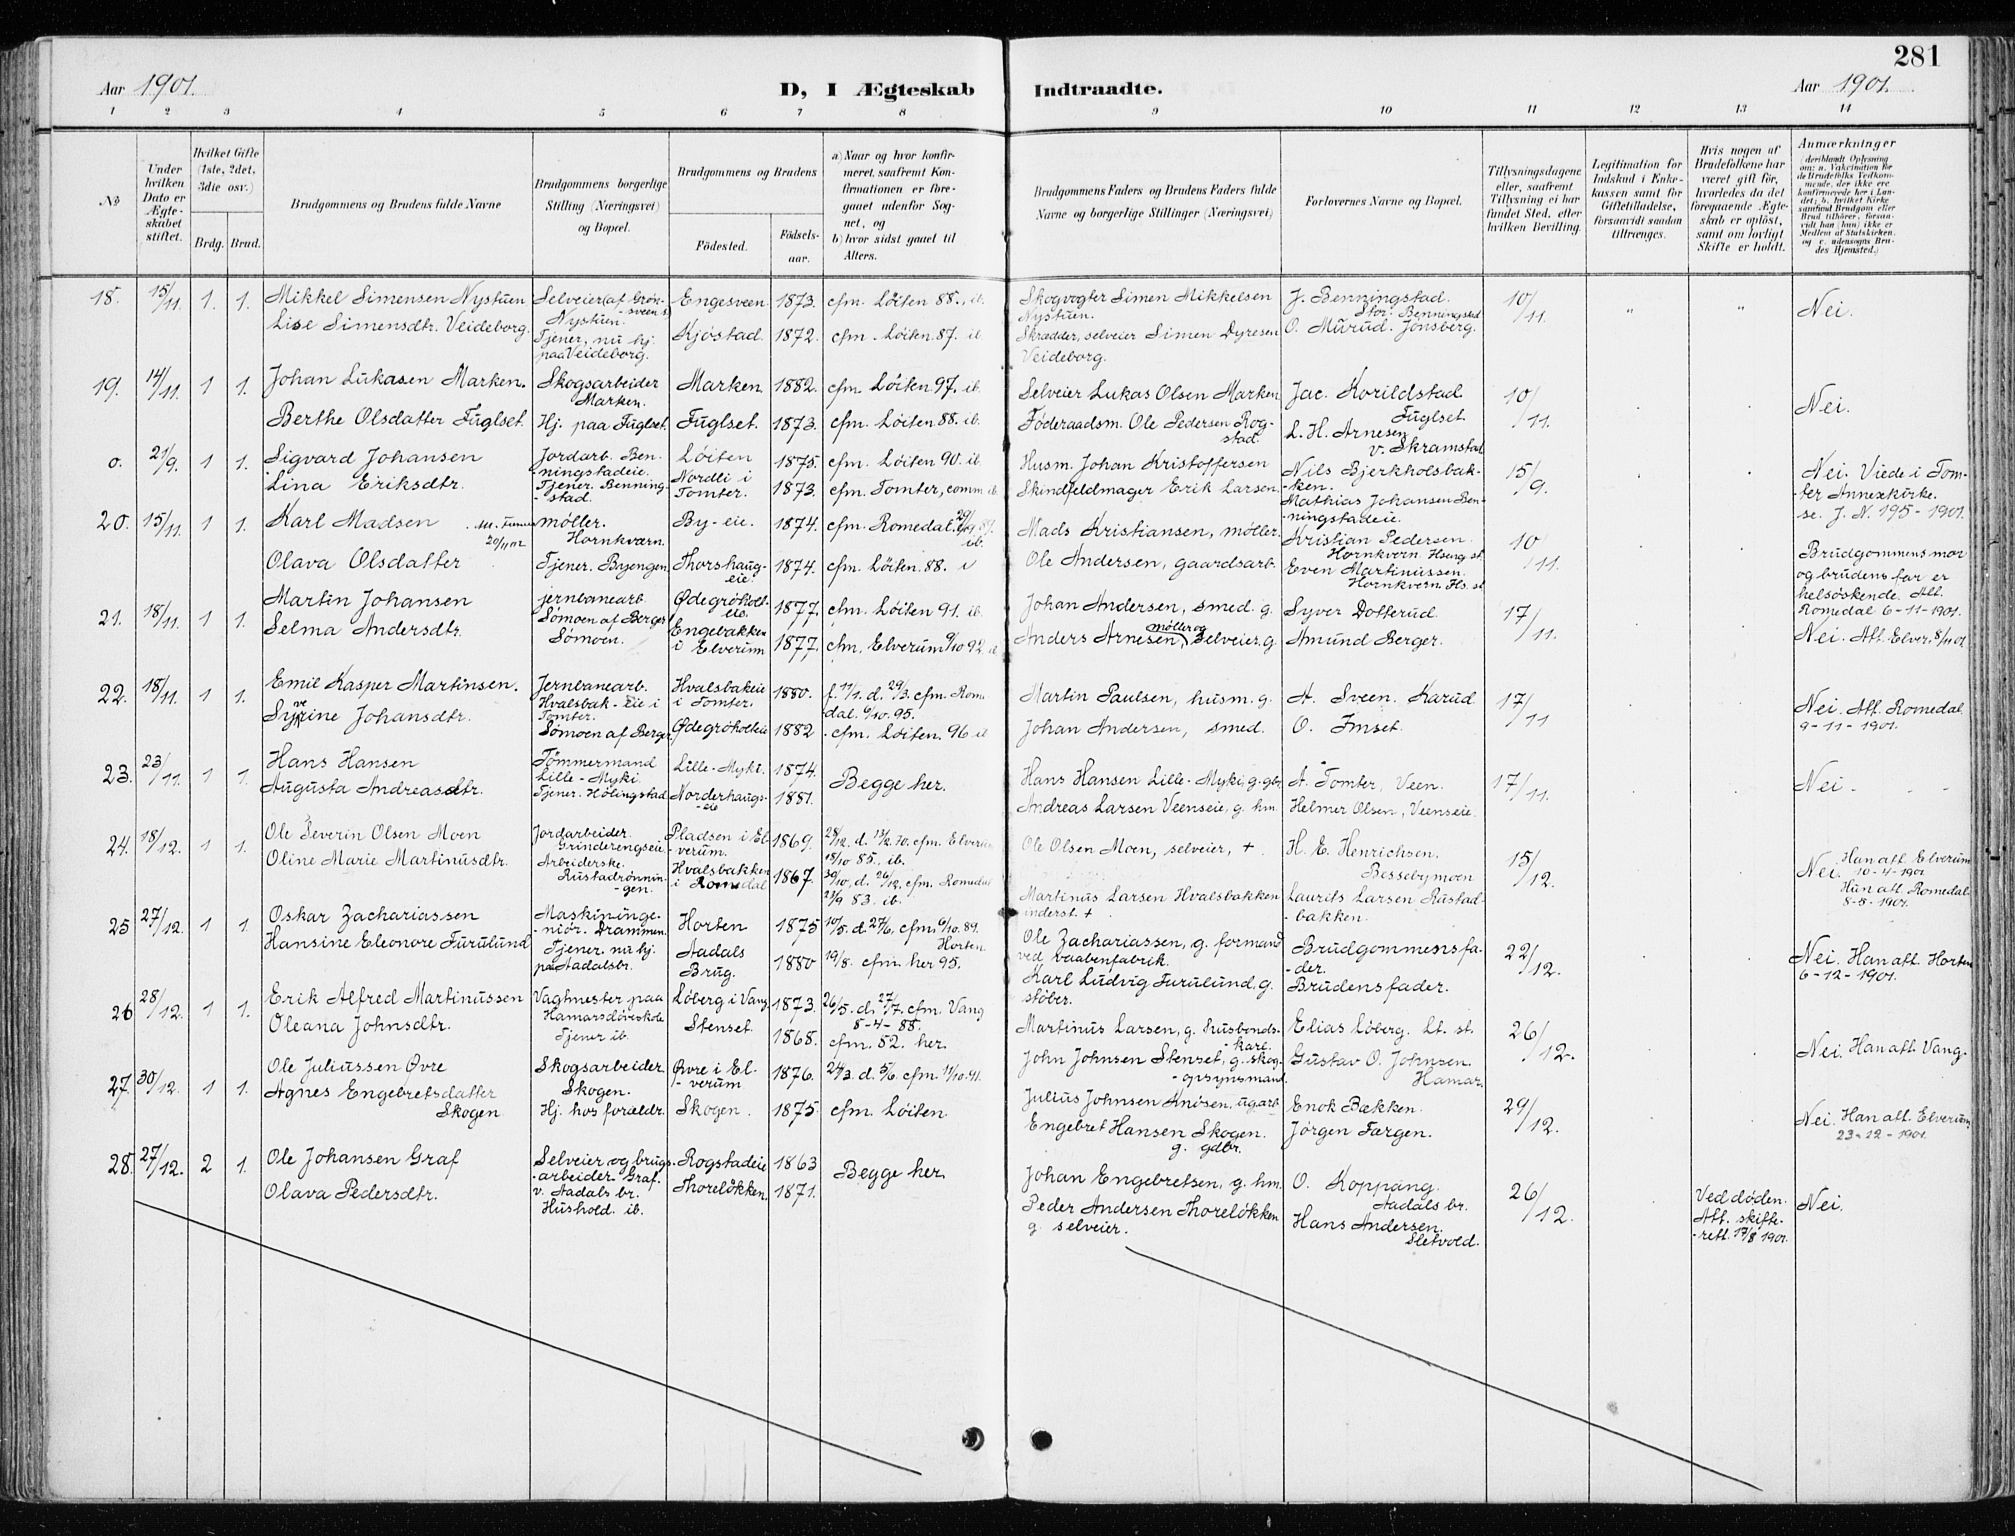 281
Aar 1901.
D, I Ægteskab Indtraadte.
Aar 1901.
1 2 3 4 5 6 7 8 9 10 11 12 13 14
No
Under hvilken Dato er Ægteskabet stiftet.
Hvilket Gifte (1ste, 2det, 3die osv.)
Brdg. Brud.
Brudgommens og Brudens fulde Navne
Brudgommens borgerlige Stilling (Næringsvei) og Bopæl.
Brudgommens og Brudens
Födested.
Födsels-aar.
a) Naar og hvor konfirmeret, saafremt Konfirmationen er foregaaet udenfor Sognet, og
b) hvor sidst gaaet til Alters.
Brudgommens Faders og Brudens Faders fulde Navne og borgerlige Stillinger (Næringsvei)
Forlovernes Navne og Bopæl.
Tillysningsdagene eller, saafremt Tillysning ei har fundet Sted, efter hvilken Bevilling.
Legitimation for Indskud i Enkekassen samt for Giftetilladelse, forsaavidt saadan tiltrænges.
Hvis nogen af Brudefolkene har været gift för, hvorledes da det foregaaende Ægteskab er oplöst, samt om lovligt Skifte er holdt.
Anmærkninger
(deriblandt Oplysning om: a. Vakcination for de Brudefolks Vedkommende, der ikke ere konfirmerede her i Landet; b. hvilket Kirkesamfund Brudgom eller Brud tilhörer, forsaavidt han (hun) ikke er Medlem af Statskirken, og c. udensogns Brudes Hjemsted.)
18. 15/11. 1. 1. Mikkel Simensen Nystuen Selveier (af Grönsveens) Nystuen. Engesveen 1873. cfm. Löiten 88., ib. Skogvogter Simen Mikkelsen Nystuen. J. Benningstad. Stor. Benningstad 10/11. " " Nei.
Lise Simensdtr. Veideborg. Tjener, nu hj. paa Veideborg. Kjöstad. 1872. cfm. Löiten. 87. ib. Skrædder, selveier Simen Dyresen Veideborg. O. Mürud. Jönsberg.
19. 14/11. 1 1. Johan Lukasen Marken. Skogsarbeider Marken. Marken. 1882. cfm. Löiten 97. ib. Selveier Lukas Olsen Marken Jac. Korildstad Fuglset. 10/11. Nei.
Berthe Olsdatter Fuglset. Hj. paa Fuglset. Fuglset. 1873. cfm. Löiten 88. ib. Föderaadsm. Ole Pedersen Rogstad. L. H. Arnesen v. Skramstad
o. 21/9. 1 1. Sigvard Johansen Jordarb. Benningstadeie. Löiten 1875. cfm. Löiten 90. ib. Husm. Johan Kristoffersen Nils Bjerkholsbakken. 15/9. Nei. Viede i Tomter Annexkirke. se. J. N. 195-1901.
Lina Eriksdtr. Tjener. Benningstad. Nordli i Tomter. 1873. cfm. Tomter, comm ib Skindfeldmager Erik Larsen. Mathias Johansen Benningstadeie.
20. 15/11. 1 1. Karl Madsen 20/11 02 möller. Hornkværn. By-eie. 1874. cfm. Romedal. ib. Mads Kristiansen, möller. Kristian Pedersen Hornkvern Hseng st. 10/11. Brudgommens mor og brudens far er helsöskende. Att. Romedal 6-11-1901.
Olava Olsdatter Tjener. Byengen. Thorshaugeie. 1874. cfm. Löiten. 88. i Ole Andersen, gaardsarb. Even Martinussen. Hornkvern Hs. st
21. 18/11. 1 1. Martin Johansen jernbanearb. Sömoen af Berger Ödegröholteie. 1877. cfm. Löiten 91. ib. Johan Andersen, smed. g. Syver Dotterud. 17/11.
Selma Andersdtr. Sömoen. Engebakken i Elverum 1877. cfm. Elverum 9/10 92. ib Anders Arnesen, möller og selveier, g. Amund Berger. Nei. Att. Elver. 8/11 01
22. 18/11. 1 1. Emil Kasper Martinsen. Jernbanearb. Hvalsbak-eie i Tomter. Hvalsbakeie i Tomter. 1880. f. 17/1. d. 29/3. cfm. Romedal. 6/10. 95. Martin Paulsen, husm. g. A. Sveen. Karud 17/11 Nei. Att. Romedal. 9-11-1901.
Syverine Johansdtr. Sömoen af Berger. Ödegröholteie 1882 cfm. Löiten. 96 ib Johan Andersen, smed. O. Imset.
23. 23/11. 1 1. Hans Hansen Tömmermand Lille-Myki. Lille-Myki. 1874. Begge her. Hans Hansen Lille-Myki, g. gbr. A. Tomter, Veen. 17/11. Nei
Augusta Andreasdtr. Tjener. Hölingstad Norderhaugseie 1881. Andreas Larsen Veenseie, g. hm. Helmer Olsen, Veenseie.
24. 18/12. 1 1. Ole Severin Olsen Moen Jordarbeider. Grinderengseie Pladsen i Elverum. 1869. 28/12. d. 13/2. 70. cfm. Elverum 18/10 85, ib. Ole Olsen Moen, selveier, + H. E. Henrichsen, Bessebymoen 15/12. Nei. Han att. Elverum 10-4-1901
Oline Marie Martinusdtr. Arbeiderske. Rustadrönningen. Hvalsbakken i Romedal 1867. 30/10. d. 26/12. cfm. Romedal 23/9 83. ib. Martinus Larsen Hvalsbakken inderst. + Laurits Larsen Rustadbakken. Hun att. Romedal. 8-8-1901.
25 27/12. 1 1 Oskar Zachariassen Maskiningeniör. Drammen. Horten 1875 10/5. d. 27/6. cfm. 6/10. 89. Horten. Ole Zachariassen, g. formand ved vaabenfabrik. Brudgommensfader. 22/12. Nei. Han att. Horten 6-12-1901.
Hansine Eleonore Furulund Tjener. nu hj. paa Aadalsbr. Aadals Brug. 1880 19/8. cfm her 95. Karl Ludvig Furulund, g. stöber. Brudensfader.
26 28/12. 1 1. Erik Alfred Martinussen Vagtmester paa Hamarsdöveskole Löberg i Vang 1873. 26/5. d. 27/7. cfm. Vang 8-4-88. Martinus Larsen, g. husbondskarl. Elias Löberg. Lt. st. 26/12. Nei. Han att. Vang.
Oleana Johnsdtr. Tjener ib. Stenset. 1868. cfm. 82. her. John Johnsen Stenset, g. skogopsynsmand. Gustav O. Johnsen Hamar.
27. 30/12. 1 1. Ole Juliussen Övre Skogsarbeider Skogen. Övre i Elverum 1876. 24/3. d. 5/6. cfm. 11/10. 91. Julius Johnsen Knösen, ugarb Enok Bækken. 29/12. Nei. Han att. Elverum 23-12-1901.
Agnes Engebretsdatter Skogen Hj. hos forældr. Skogen. 1875. cfm. Löiten. Engebret Hansen Skogen. g. gdbr. Jörgen Færgen.
28. 27/12. 2 1. Ole Johansen Graf Selveier og brugsarbeider. Graf. v. Aadals br. Rogstadeie 1863 Begge her Johan Engebretsen, g. hm. O. Koppang. Aadals br. 26/12. Ved döden. Att. skifteret. 17/8 1901. Nei.
Olava Pedersdtr. Hushold. ib. Thorelökken. 1871. Peder Andersen Thorelökken g. selveier. Hans Andersen. Sletvold.